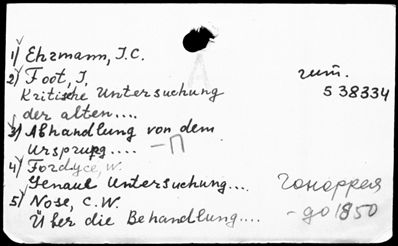 1) Ehrmann, J.C.
2) Foot, J.
Kritische Untersuchung
der alten....
3) Abhandlung von dem
Ursprung.... -П
4) Fordyce, W.
Genaue Untersuchung...
5) Nose, C.W.
Über die Behandlung....
гит.
538334
Гоноррея
- до 1850